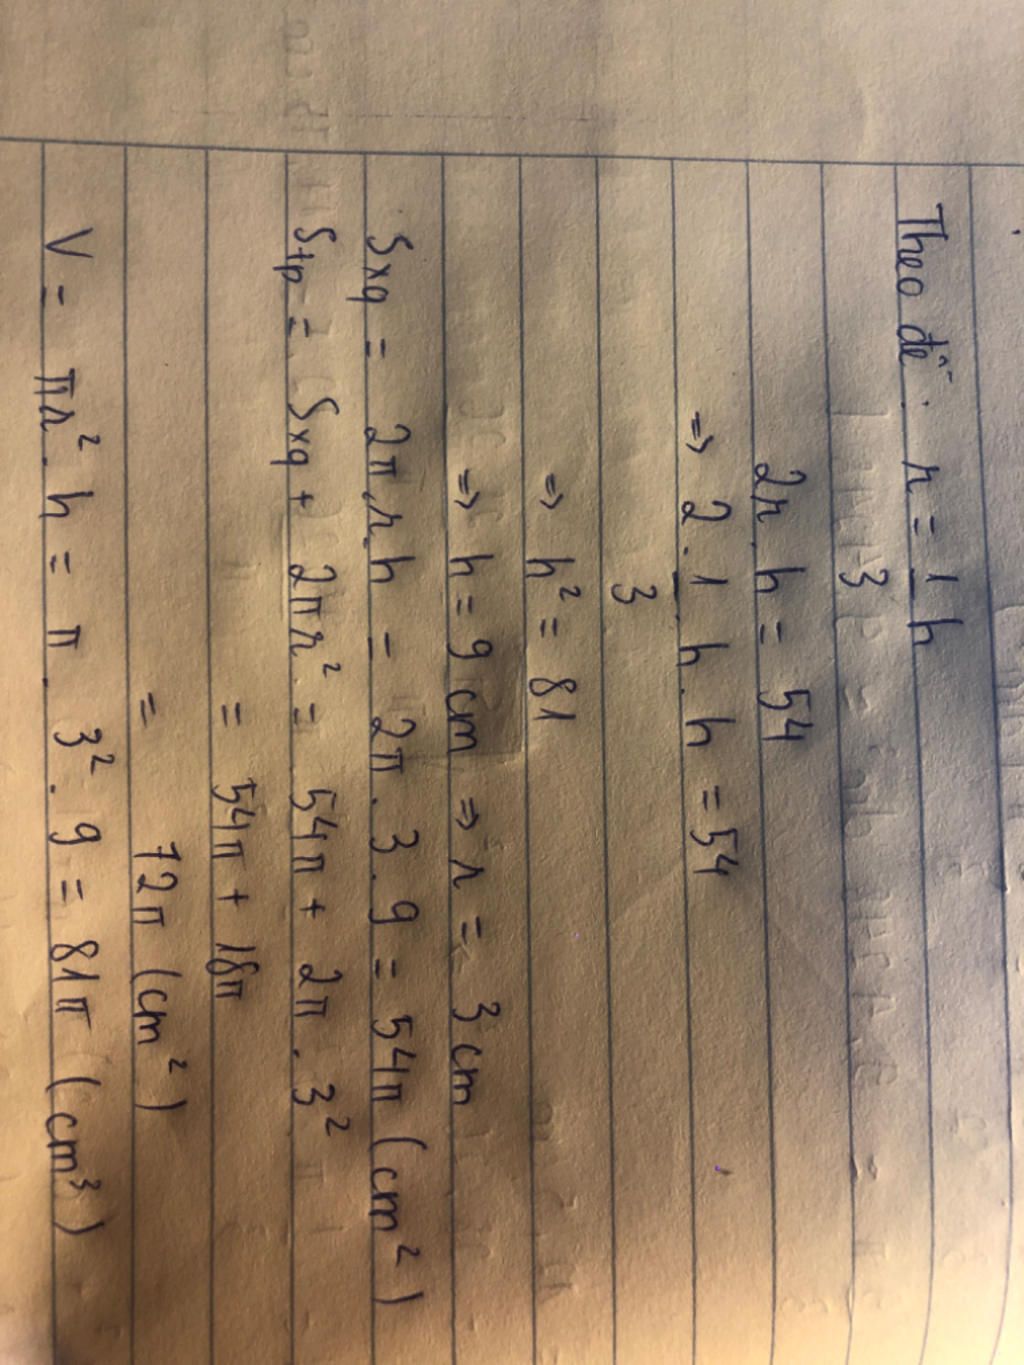 Theo đề: r = 1/3 h
2r.h = 54
=> 2. 1/3 h.h = 54
=> h² = 81
=> h = 9cm => r = 3cm
Sxq = 2π.r.h = 2π.3.9 = 54π (cm²)
Stp = Sxq + 2πr² = 54π + 2π.3²
= 54π + 18π
= 72π (cm²)
V = πr².h = π.3².9 = 81π (cm³)